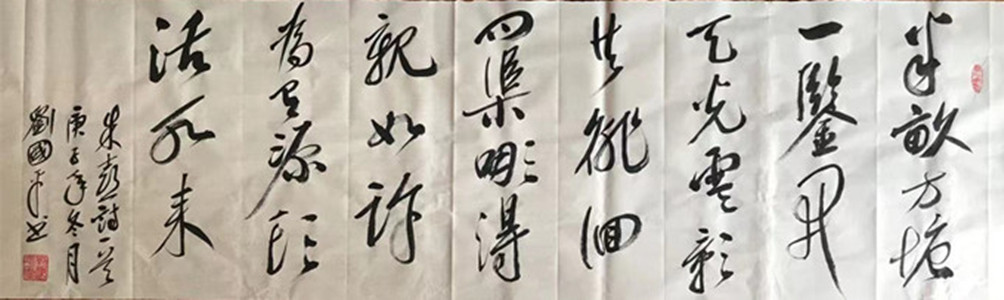 半畝方塘
一鑒開
天光雲影
共徘徊
问渠哪得
親如許
為有源頭
活水来
朱熹詩一首
庚子年冬月
劉國平书